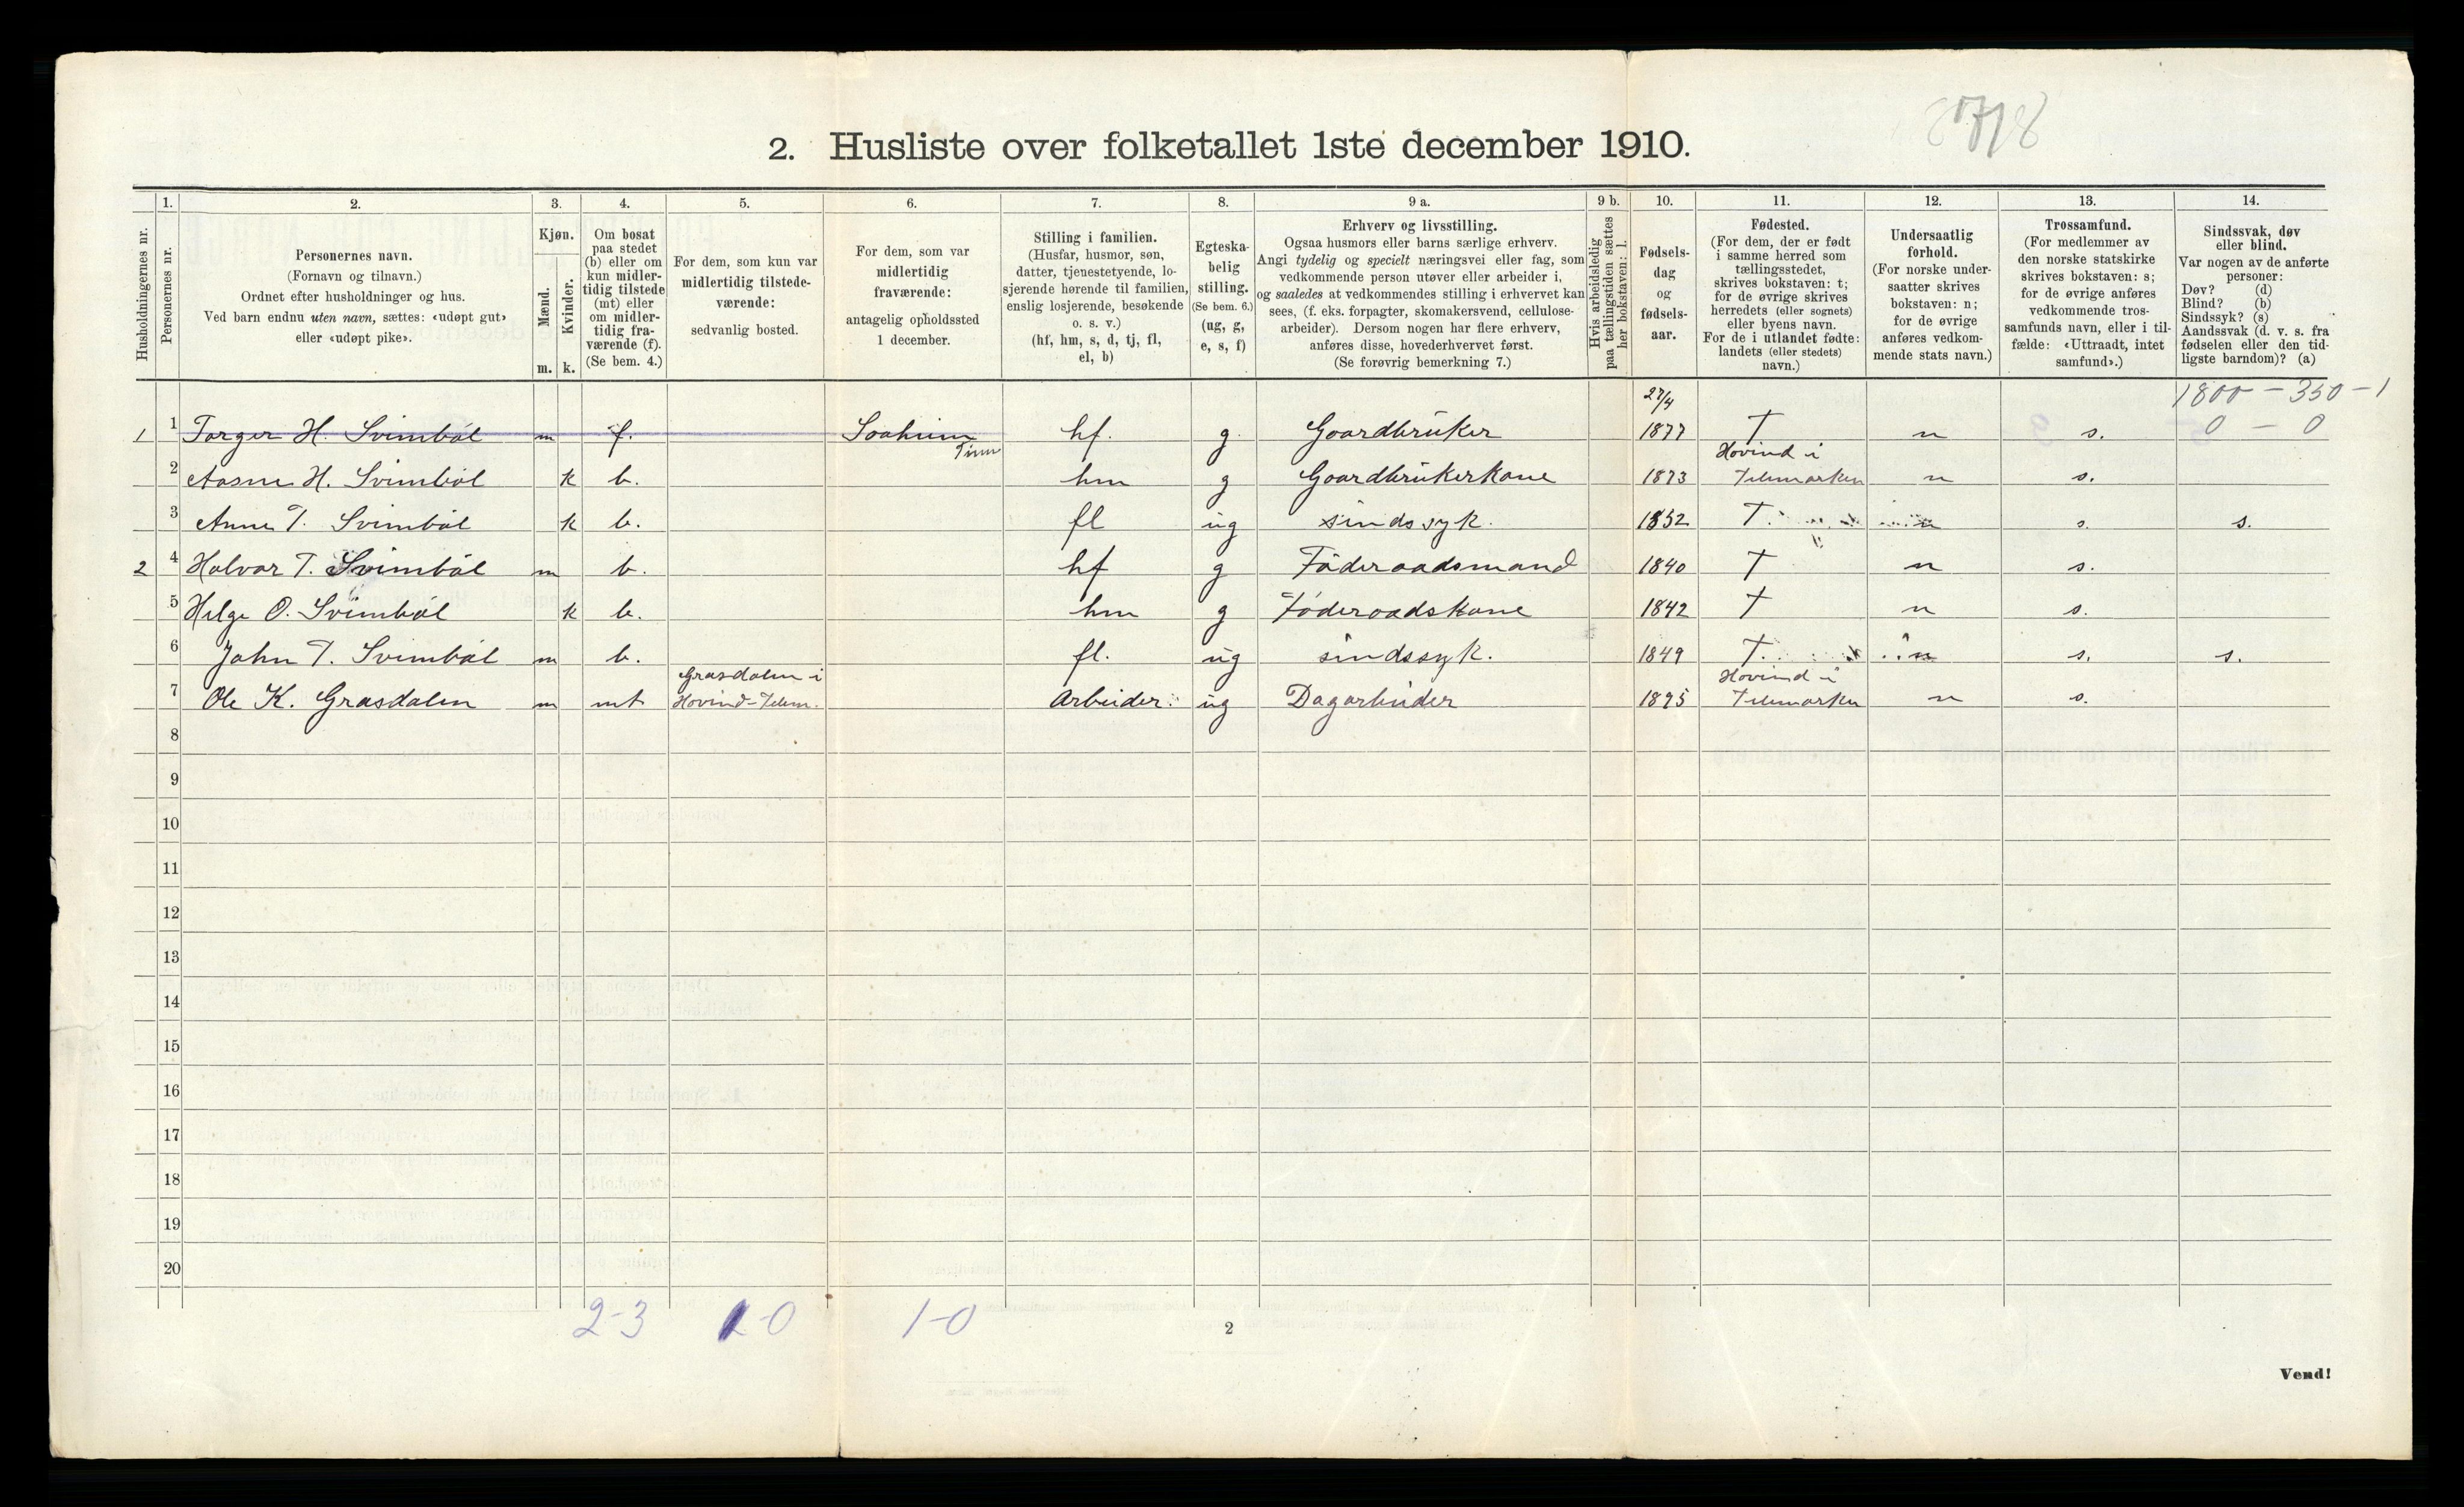 2. Husliste over folketallet 1ste december 1910.
Husholdningernes nr.
1.
Personernes nr.
2.
Personernes navn.
(Fornavn og tilnavn.)
Ordnet efter husholdninger og hus.
Ved barn endnu uten navn, sættes: «udøpt gut»
eller «udøpt pike».
3.
Kjøn.
Mænd.
Kvinder.
m. k.
4.
Om bosat
paa stedet
(b) eller om
kun midler-
tidig tilstede
(mt) eller
om midler-
tidig fra-
værende (f).
(Se bem. 4.)
5.
For dem, som kun var
midlertidig tilstede-
værende:
sedvanlig bosted.
6.
For dem, som var
midlertidig
fraværende:
antagelig opholdssted
1 december.
7.
Stilling i familien.
(Husfar, husmor, søn,
datter, tjenestetyende, lo-
sjerende hørende til familien,
enslig losjerende, besøkende
o. s. v.)
(hf, hm, s, d, tj, fl,
el, b)
8.
Egteska-
belig
stilling.
(Se bem. 6.)
(ug, g,
e, s, f)
9 a.
Erhverv og livsstilling.
Ogsaa husmors eller barns særlige erhverv.
Angi tydelig og specielt næringsvei eller fag, som
vedkommende person utøver eller arbeider i,
og saaledes at vedkommendes stilling i erhvervet kan
sees, (f. eks. forpagter, skomakersvend, cellulose-
arbeider). Dersom nogen har flere erhverv,
anføres disse, hovederhvervet først.
(Se forøvrig bemerkning 7.)
9 b.
Hvis arbeidsledig
paa tællingstiden sættes
her bokstaven: l.
10.
Fødsels-
dag
og
fødsels-
aar.
11.
Fødested.
(For dem, der er født
i samme herred som
tællingsstedet,
skrives bokstaven: t;
for de øvrige skrives
herredets (eller sognets)
eller byens navn.
For de i utlandet fødte:
landets (eller stedets)
navn.)
12.
Undersaatlig
forhold.
(For norske under-
saatter skrives
bokstaven: n;
for de øvrige
anføres vedkom-
mende stats navn.)
13.
Trossamfund.
(For medlemmer av
den norske statskirke
skrives bokstaven: s;
for de øvrige anføres
vedkommende tros-
samfunds navn, eller i til-
fælde: «Uttraadt, intet
samfund».)
14.
Sindssvak, døv
eller blind.
Var nogen av de anførte
personer:
Døv? (d)
Blind? (b)
Sindssyk? (s)
Aandssvak (d. v. s. fra
fødselen eller den tid-
ligste barndom)? (a)
27/4 1800 - 350 - 1
1 1 Torger H. Svimbøl m f. Soaheim Tinn hf. g. Goardbrüker 1877 T n s. 0 - 0
Hovind i
2 Aasne H. Svimbøl k b. hm g Goardbrükerkone 1873 Telemarken n s.
3 Anne T. Svimbøl k b. fl ug sindssyk. 1852 T. n s. s.
2 4 Halvor T. Svimbøl m b. hf g Føderaadsmand 1840 T n s.
5 Helge O. Svimbøl k b. hm g Føderoadskone 1842 T n s.
6 John T. Svimbøl m b. fl. ug sindssyk. 1849 T. n s. s.
Grasdalen i Hovind i
7 Ole K. Grasdalen m mt Hovind-Telem. Arbeider. ug Dagarbeider 1895 Telemarken n s.
8
9
10
11
12
13
14
15
16
17
18
19
20
2-3 1-0 1-0
2
Vend!